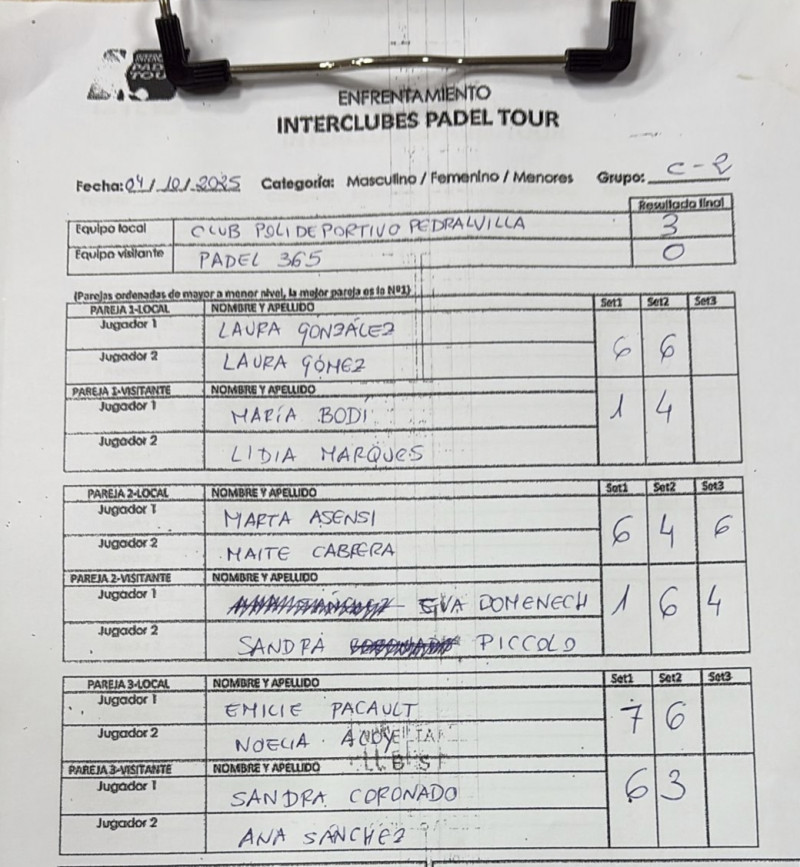 INTERCLUBES PADEL TOUR
ENFRENTAMIENTO
INTERCLUBES PADEL TOUR
Fecha: 04/10/2025 Categoría: Masculino / Femenino / Menores Grupo: C-2
Resultado final
Equipo local CLUB POLIDEPORTIVO PEDRALVILLA 3
Equipo visitante PADEL 365 0
(Parejas ordenadas de mayor a menor nivel, la mejor pareja es la Nº1)
PAREJA 1-LOCAL NOMBRE Y APELLIDO Set1 Set2 Set3
Jugador 1 LAURA GONZÁLEZ
6 6
Jugador 2 LAURA GÓMEZ
PAREJA 1-VISITANTE NOMBRE Y APELLIDO
Jugador 1 MARÍA BODÍ
1 4
Jugador 2 LIDIA MARQUES
PAREJA 2-LOCAL NOMBRE Y APELLIDO Set1 Set2 Set3
Jugador 1 MARTA ASENSI
6 4 6
Jugador 2 MAITE CABRERA
PAREJA 2-VISITANTE NOMBRE Y APELLIDO
Jugador 1 EVA DOMENECH
1 6 4
Jugador 2 SANDRA PICCOLO
PAREJA 3-LOCAL NOMBRE Y APELLIDO Set1 Set2 Set3
Jugador 1 EMILIE PACAULT
7 6
Jugador 2 NOELIA
PAREJA 3-VISITANTE NOMBRE Y APELLIDO
Jugador 1 SANDRA CORONADO
6 3
Jugador 2 ANA SÁNCHEZ